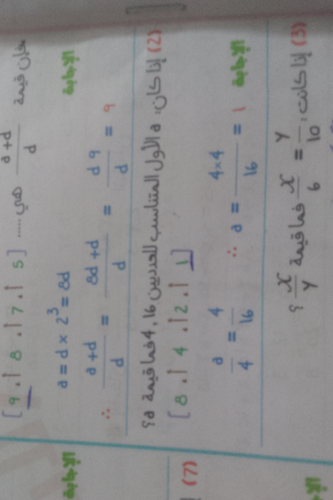 فإن قيمة a+d/d هي ..... [ 5 أ، 7 أ، 8 أ، 9 ]
الحل
a = d × 2³ = 8d
∴ a+d/d = 8d+d/d = 9d/d = 9
(2) إذا كان: a الأول المتناسب للعددين 4, 16 فما قيمة a؟
[ 1 أ، 2 أ، 4 أ، 8 ]
الحل
a/4 = 4/16 ∴ a = 4×4/16 = 1
(3) إذا كانت: x/6 = y/10 فما قيمة x/y ؟
الحل
(7)